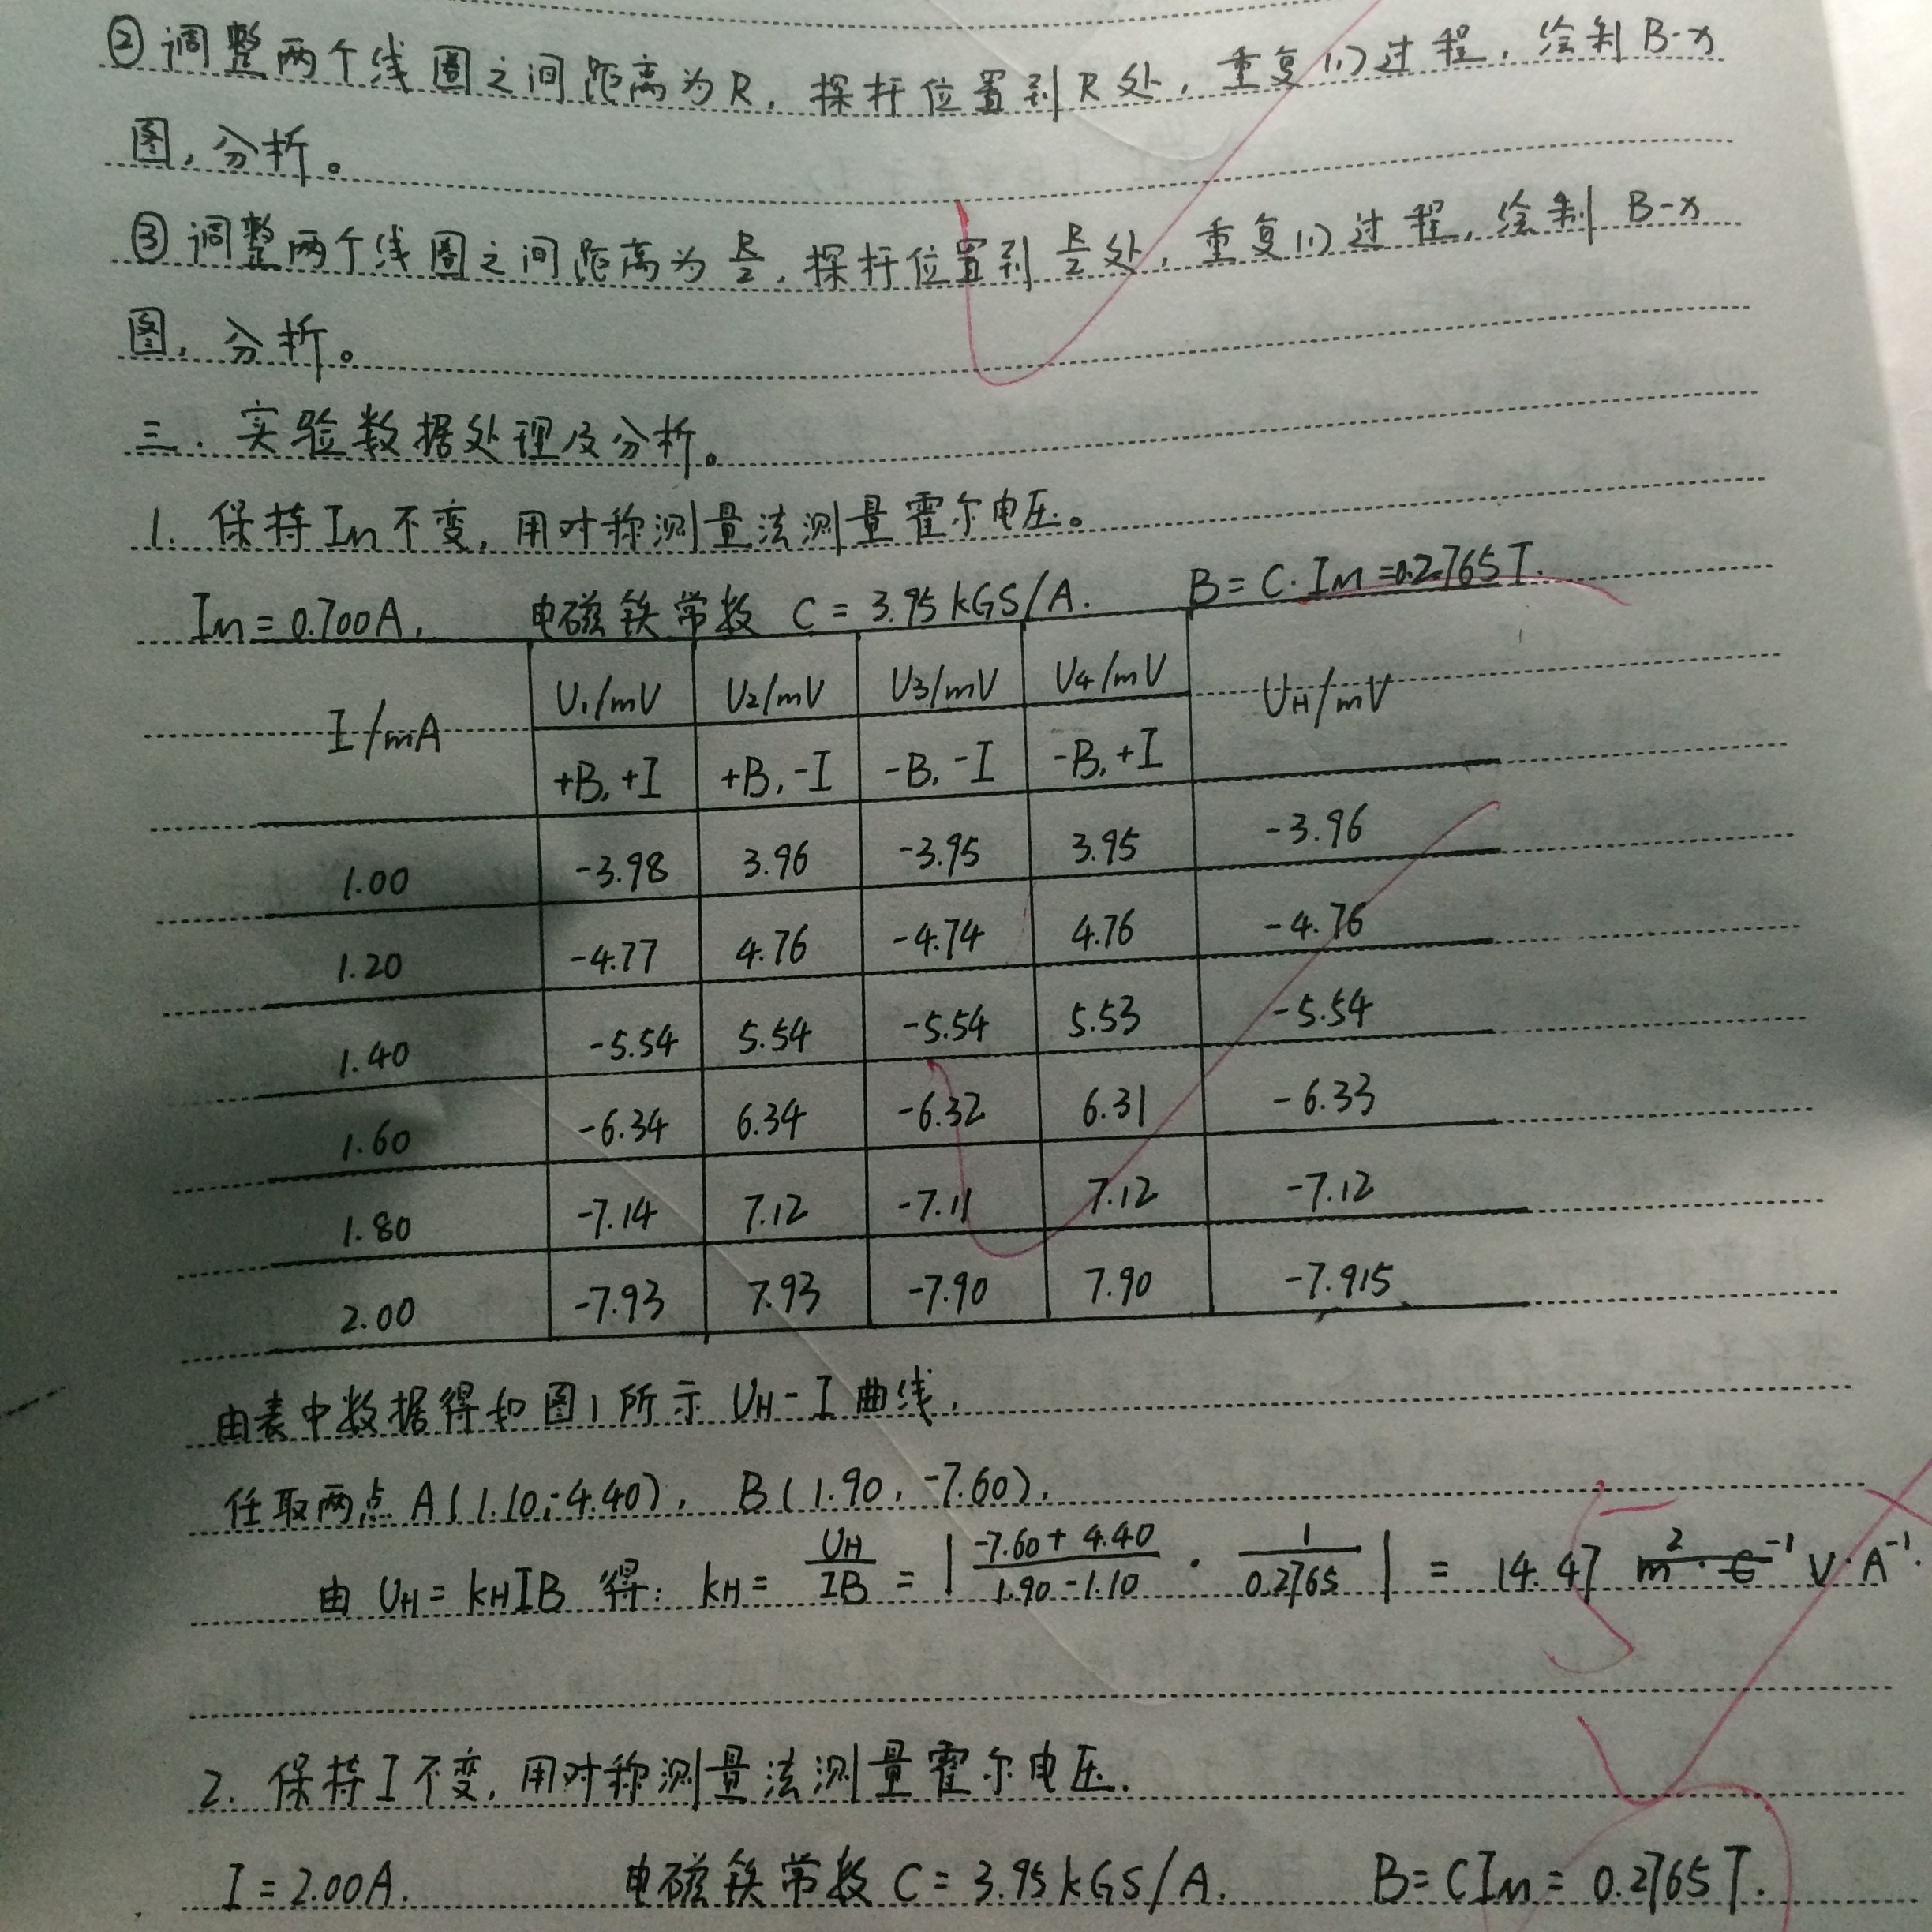 ②调整两个线圈之间距离为R，探杆位置到R处，重复(1)过程，绘制B-x
图，分析。
③调整两个线圈之间距离为R/2，探杆位置到R/2处，重复(1)过程，绘制B-x
图，分析。
三．实验数据处理及分析。
1. 保持Im不变，用对称测量法测量霍尔电压。
Im=0.700A， 电磁铁常数 C=3.95kGS/A. B=C·Im=0.2765T.
I/mA U₁/mV U₂/mV U₃/mV U₄/mV UH/mV
+B,+I +B,-I -B,-I -B,+I
1.00 -3.98 3.96 -3.95 3.95 -3.96
1.20 -4.77 4.76 -4.74 4.76 -4.76
1.40 -5.54 5.54 -5.54 5.53 -5.54
1.60 -6.34 6.34 -6.32 6.31 -6.33
1.80 -7.14 7.12 -7.11 7.12 -7.12
2.00 -7.93 7.93 -7.90 7.90 -7.915
由表中数据得如图1所示 UH-I 曲线，
任取两点 A(1.10,-4.40)，B(1.90，-7.60)，
由 UH=kHIB 得：kH=UH/IB=|(-7.60+4.40)/(1.90-1.10)·1/0.2765|=14.47 V·A⁻¹.
2. 保持I不变，用对称测量法测量霍尔电压.
I=2.00A. 电磁铁常数 C=3.95kGS/A. B=CIm=0.2765T.